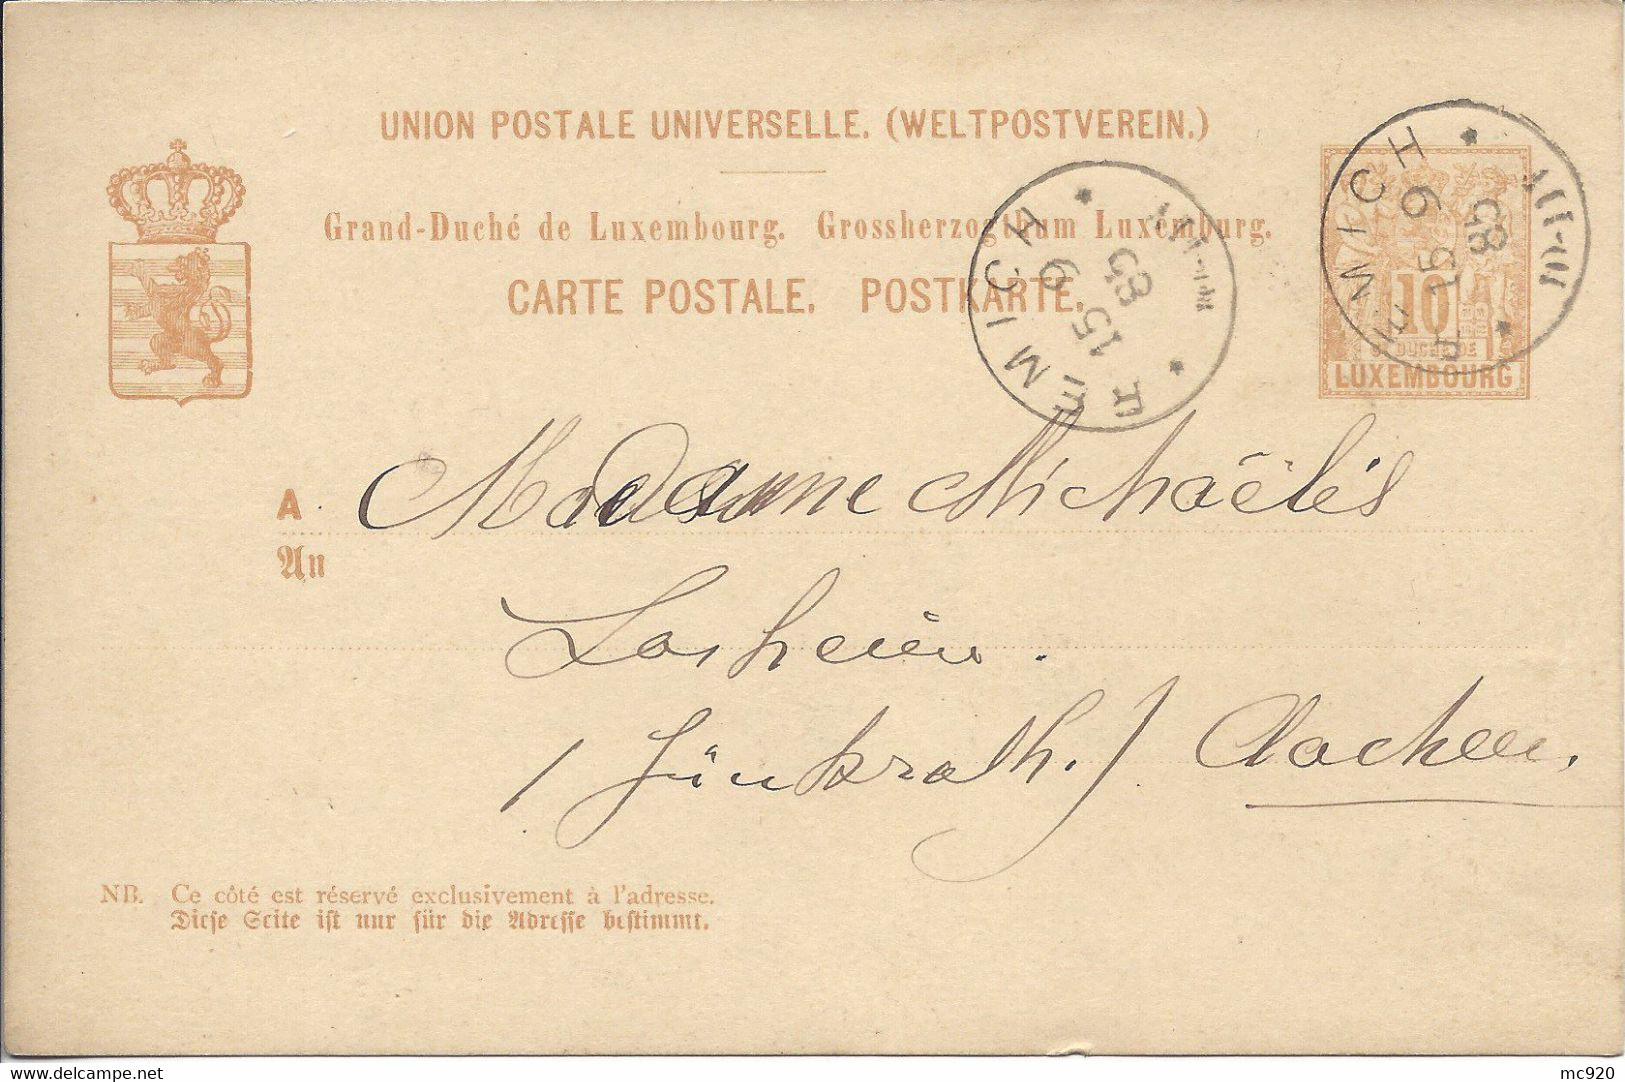 UNION POSTALE UNIVERSELLE. (WELTPOSTVEREIN.)
Grand-Duché de Luxembourg. Grossherzogthum Luxemburg.
CARTE POSTALE. POSTKARTE.
REMICH
15 6
85
REMICH
15 6
85
10
GD DUCHÉ DE
LUXEMBOURG
A Madame Michaëlis
An
Losheim.
(Jünkrath.) Aachen.
NB. Ce côté est réservé exclusivement à l'adresse.
Diese Seite ist nur für die Adresse bestimmt.
delcampe.net
mc920